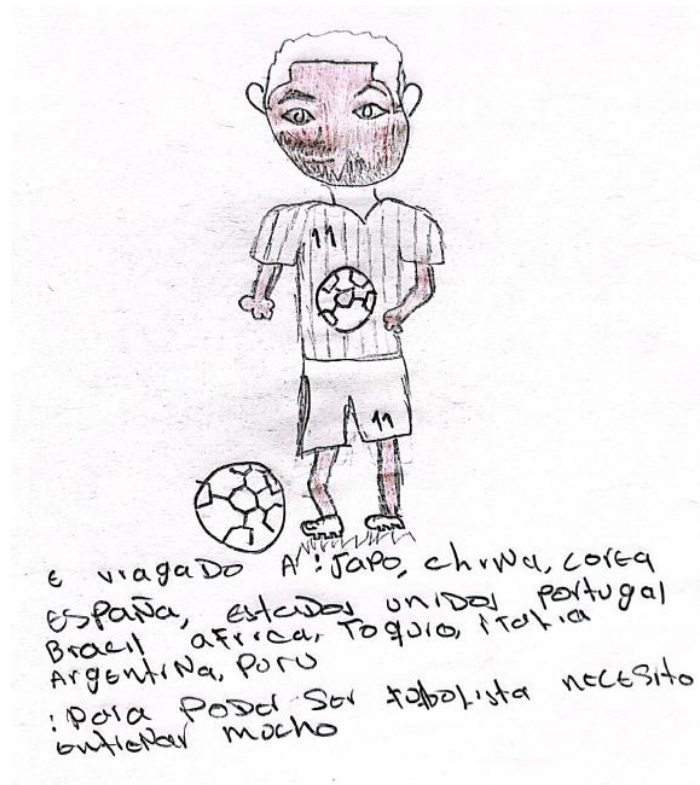 11
11
E viagado A : Japo, chiNa, corea
ESPAÑa, estados unidos portugal
Bracil africa, Toquio, iTalia
ArgentiNa, Peru
: para poder Ser fobolista necesito
entrenar mucho